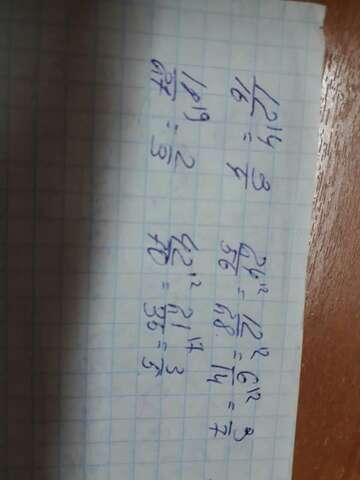 12/16 \4 = 3/4 24/56 \2 = 12/28 \2 = 6/14 \2 = 3/7
18/27 \9 = 2/3 42/70 \2 = 21/35 \7 = 3/5